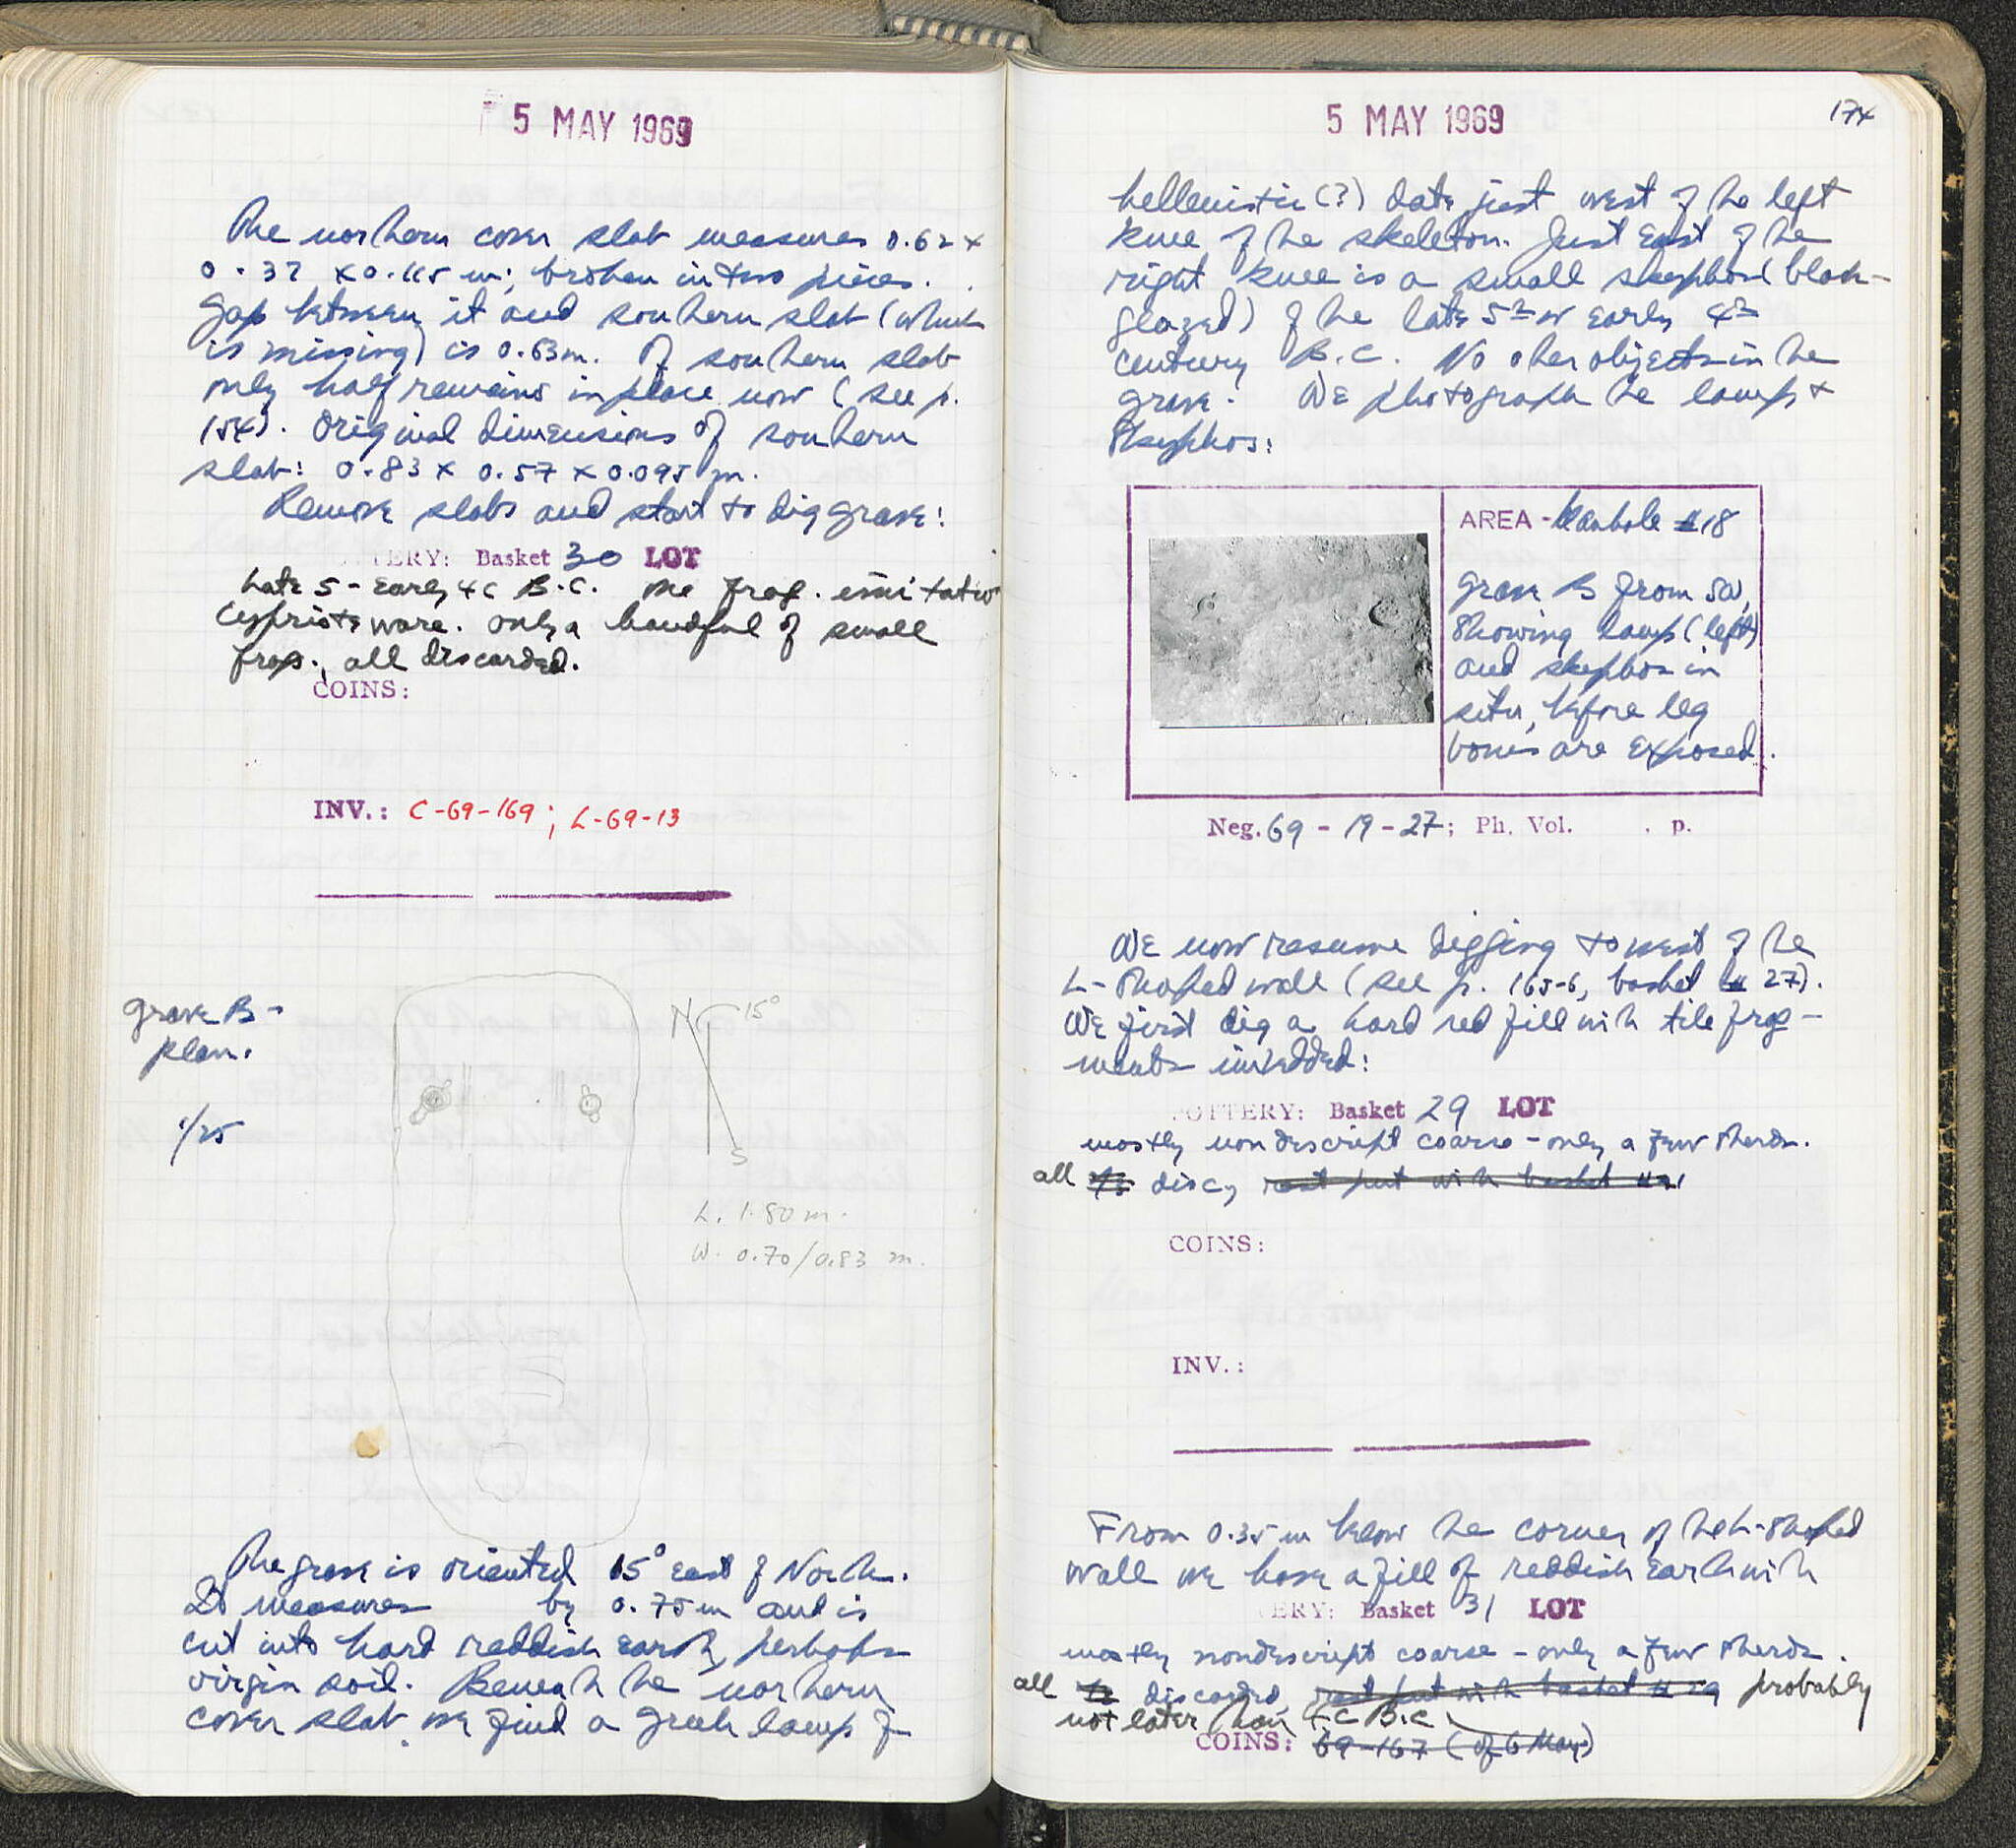 5 MAY 1969
The northern cover slab measures 0.62 x
0.37 x 0.115 m; broken in two pieces.
Gap between it and southern slab (which
is missing) is 0.63m. Of southern slab
only half remains in place now (see p.
154). Original dimensions of southern
slab: 0.83 x 0.57 x 0.095 m.
Remove slabs and start to dig grave:
TERY: Basket 30 LOT
Late 5 - early 4c B.C. One frag. imitation
Cypriote ware. Only a handful of small
frags., all discarded.
COINS:
INV.: C-69-169; L-69-13
Grave B -
plan.
1/25
N 15°
S
L. 1.80 m.
W. 0.70/0.83 m.
The grave is oriented 15° east of North.
It measures by 0.75 m and is
cut into hard reddish earth, perhaps
virgin soil. Beneath the northern
cover slab we find a Greek lamp of
5 MAY 1969
174
hellenistic (?) date just west of the left
knee of the skeleton. Just east of the
right knee is a small skyphos (black-
glazed) of the late 5th or early 4th
century B.C. No other objects in the
grave. We photograph the lamp +
skyphos:
AREA - Manhole #18
Grave B from SW,
showing lamp (left)
and skyphos in
situ, before leg
bones are exposed.
Neg. 69 - 19 - 27; Ph. Vol. . p.
We now resume digging to west of the
L-shaped wall (see p. 165-6, basket # 27).
We first dig a hard red fill with tile frag-
ments imbedded:
OTTERY: Basket 29 LOT
mostly nondescript coarse - only a few sherds.
all disc, rest put with basket #31
COINS:
INV.:
From 0.35 m below the corner of the L-shaped
wall we have a fill of reddish earth with
ERY: Basket 31 LOT
mostly nondescript coarse - only a few sherds.
all discarded, rest put with basket # 29 probably
not later than 4c B.C.
COINS: 69-167 (of 6 May)